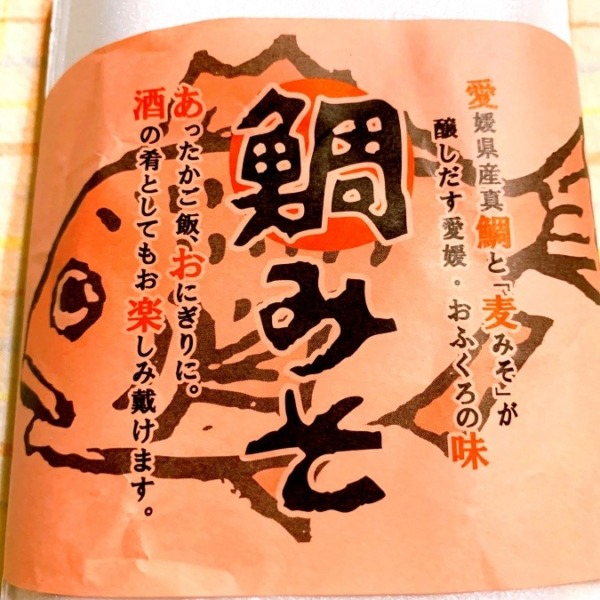 愛媛県産真鯛と「麦みそ」が
醸しだす愛媛・おふくろの味
鯛みそ
あったかご飯、おにぎりに。
酒の肴としてもお楽しみ戴けます。